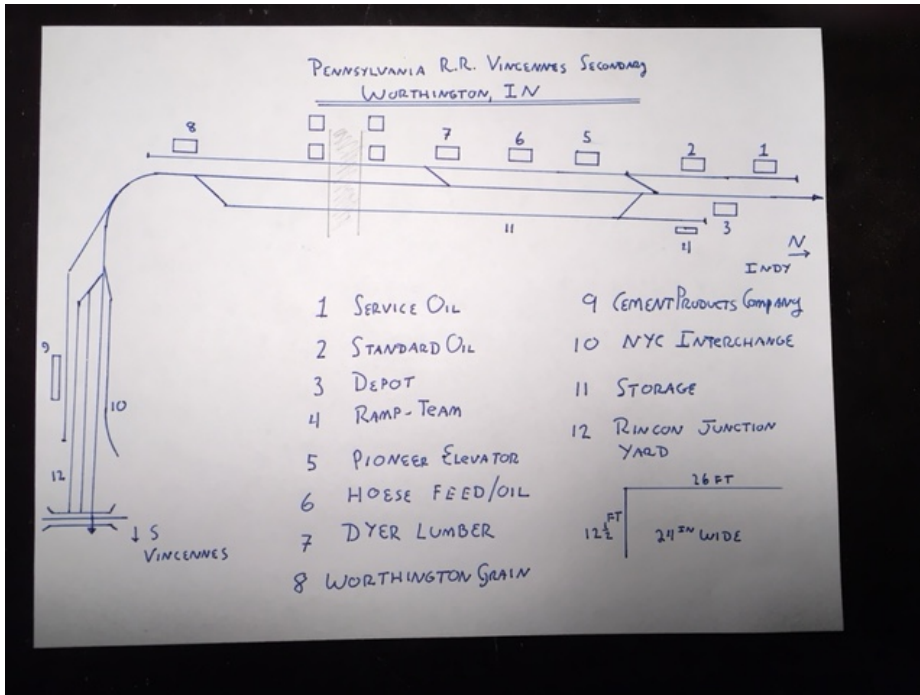 PENNSYLVANIA R.R. VINCENNES SECONDARY
WORTHINGTON, IN
8
7
6
5
2
1
11
4
3
N
INDY
9
10
12
↓ S
VINCENNES
1 SERVICE OIL
2 STANDARD OIL
3 DEPOT
4 RAMP-TEAM
5 PIONEER ELEVATOR
6 HOESE FEED/OIL
7 DYER LUMBER
8 WORTHINGTON GRAIN
9 CEMENT PRODUCTS COMPANY
10 NYC INTERCHANGE
11 STORAGE
12 RINCON JUNCTION
YARD
26 FT
12½ FT
24 IN WIDE